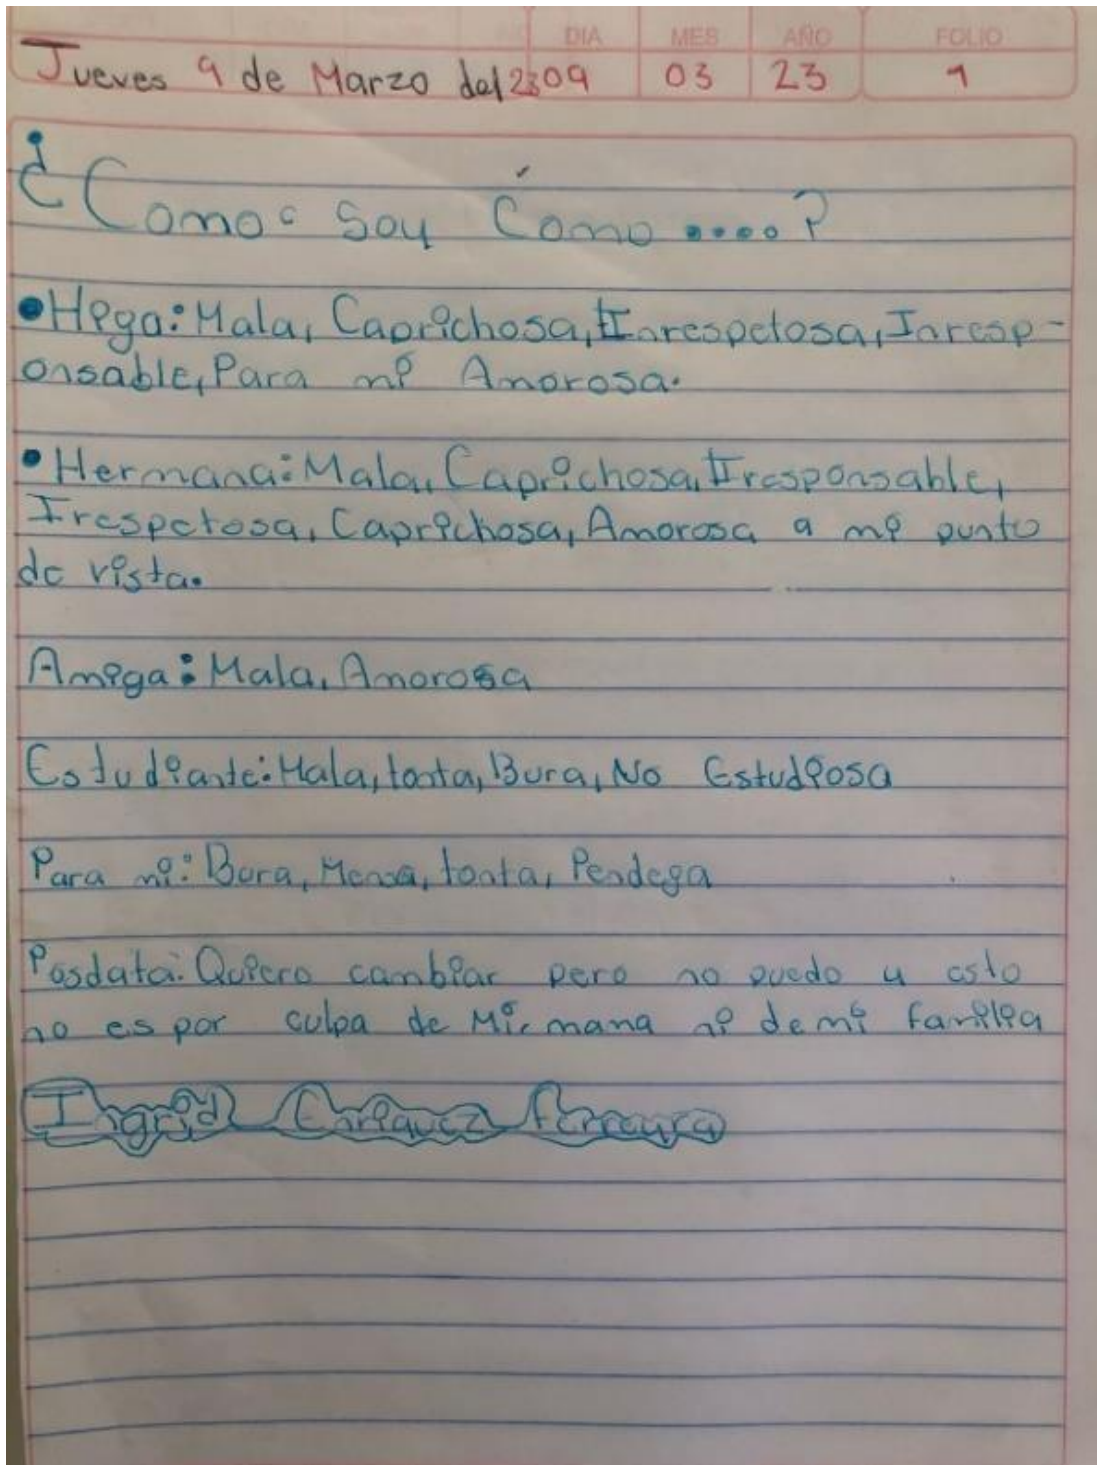 DIA MES AÑO FOLIO
Jueves 9 de Marzo del 23 09 03 23 1
¿Como: Soy Como ....?
•Higa: Mala, Caprichosa, Inrespetosa, Inresp-
onsable, Para mi Amorosa.
•Hermana: Mala, Caprichosa, Iresponsable,
Irespetosa, Caprichosa, Amorosa a mi punto
de vista.
Amiga: Mala, Amorosa
Estudiante: Mala, tonta, Bura, No Estudiosa
Para mi: Bura, Mensa, tonta, Pendega
Posdata: Quiero cambiar pero no puedo y esto
no es por culpa de Mi mana ni de mi familia
Ingrid